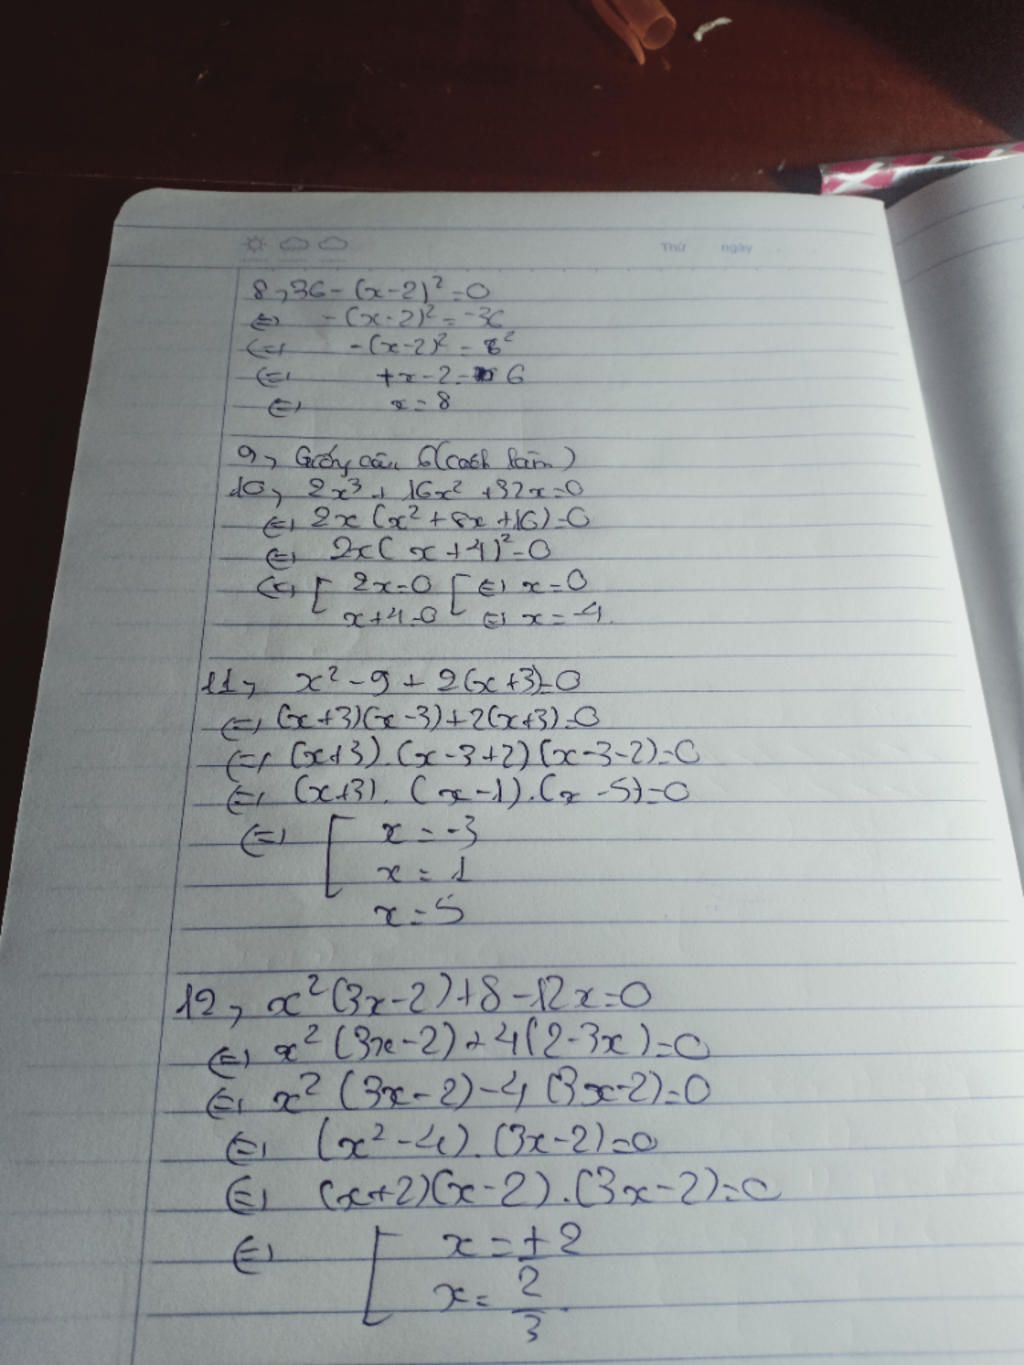 Thứ ngày
8, 36 - (x-2)² = 0
⇔ -(x-2)² = -36
⇔ -(x-2)² = 6²
⇔ +x-2 = 6
⇔ x = 8
9, Giống câu 6 (cách làm)
10, 2x³ + 16x² + 32x = 0
⇔ 2x(x² + 8x + 16) = 0
⇔ 2x(x+4)² = 0
⇔ [ 2x = 0 [ ⇔ x = 0
x+4 = 0 ⇔ x = -4.
11, x² - 9 + 2(x+3) = 0
⇔ (x+3)(x-3) + 2(x+3) = 0
⇔ (x+3).(x-3+2)(x-3-2) = 0
⇔ (x+3).(x-1).(x-5) = 0
⇔ [ x = -3
x = 1
x = 5
12, x²(3x-2) + 8 - 12x = 0
⇔ x²(3x-2) + 4(2-3x) = 0
⇔ x²(3x-2) - 4(3x-2) = 0
⇔ (x²-4).(3x-2) = 0
⇔ (x+2)(x-2).(3x-2) = 0
⇔ [ x = ±2
x = 2/3